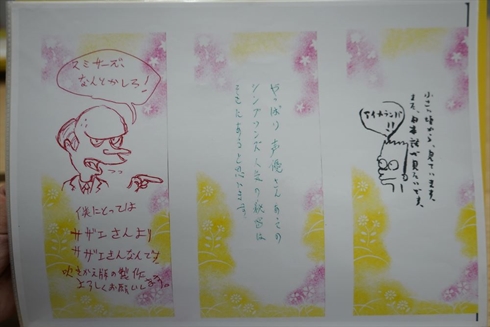 スミサーズ
なんとかしろ！
僕にとっては
サザエさんより
サザエさんなんです
吹きかえ版の製作
よろしくお願いします。
やっぱり声優さんあっての
シンプソンズ人気の秘密は
ここにあると思います
アイキャランビ!!
小さい頃から、見ています。
また、日本語が見たいです。